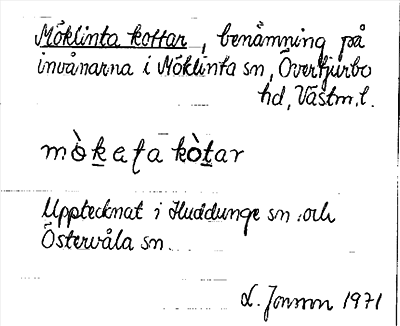 Möklinta kottar, benämning på
invånarna i Möklinta sn, Övertjurbo
hd, Västm.l.
mòkaťa kòtar
Upptecknat i Huddunge sn och
Östervåla sn.
L. Jonson 1971